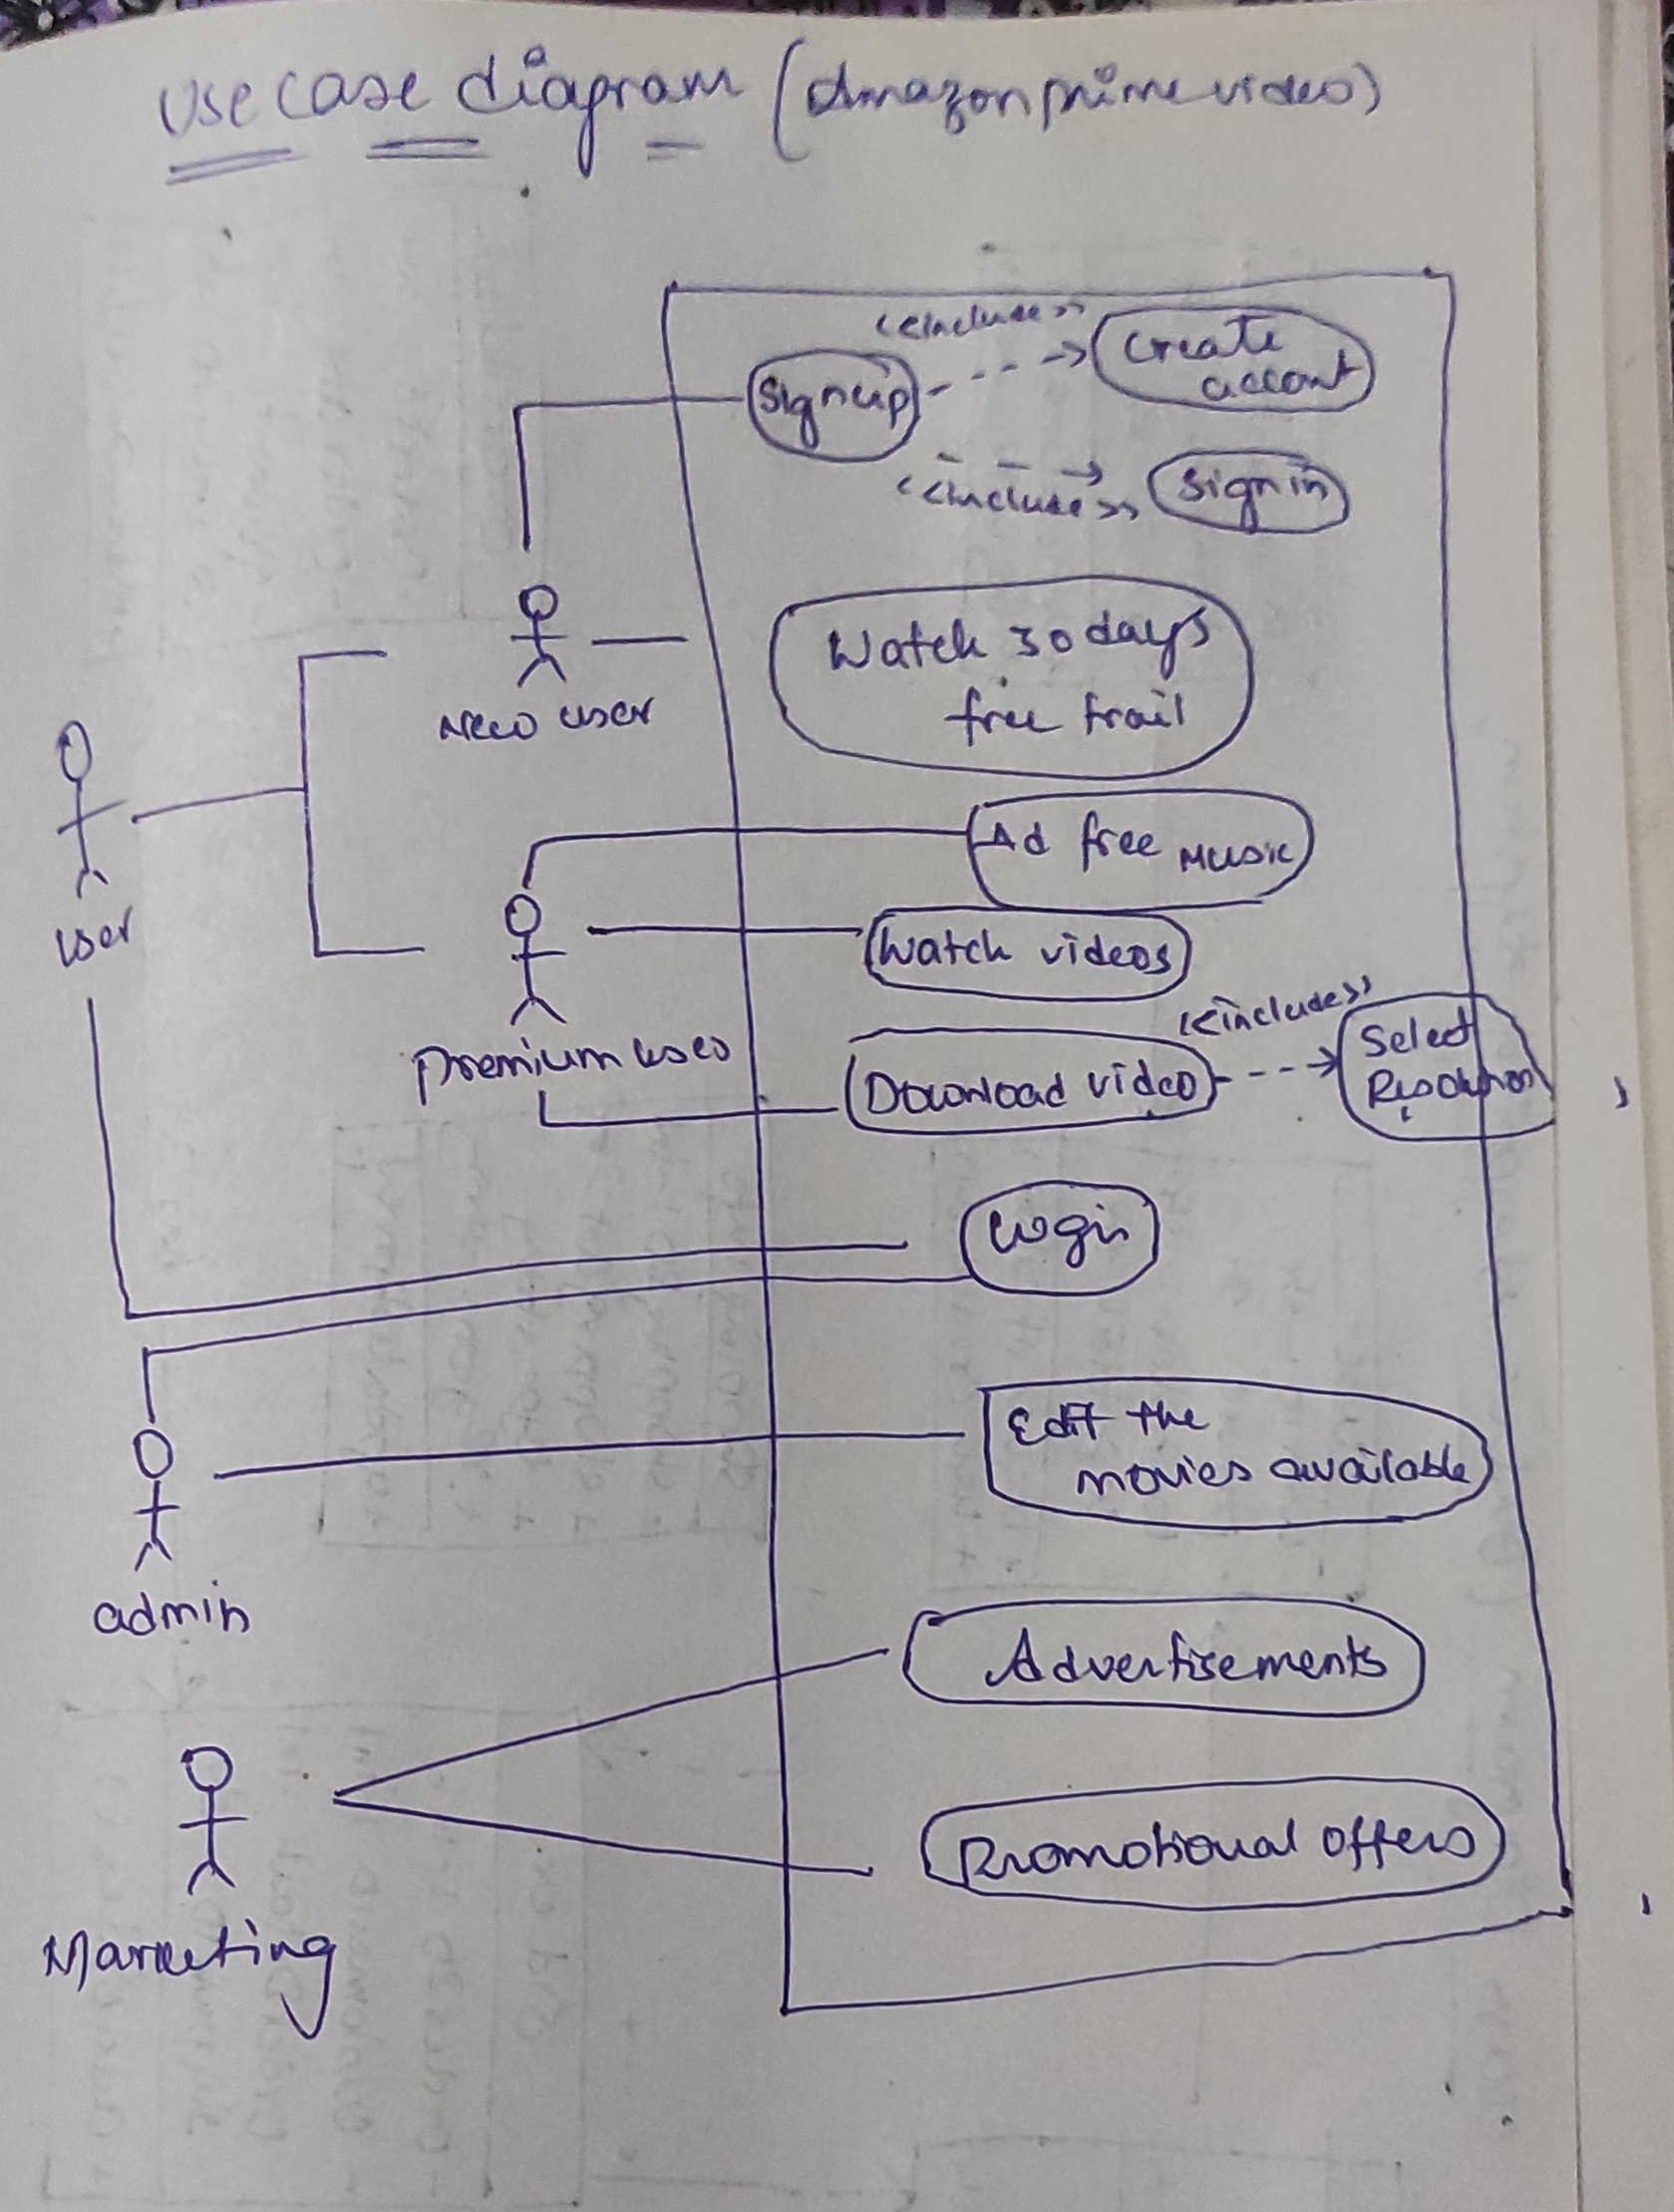 Usecase diagram (Amazon prime video)
<<include>>
Signup
Create
accont
<<include>>
Signin
New user
Watch 30 days
free trail
User
Ad free Music
Watch videos
<<include>>
Premium user
Download video
Select
Resolution
Login
Edit the
movies available
admin
Advertisements
Promotional offers
Marketing